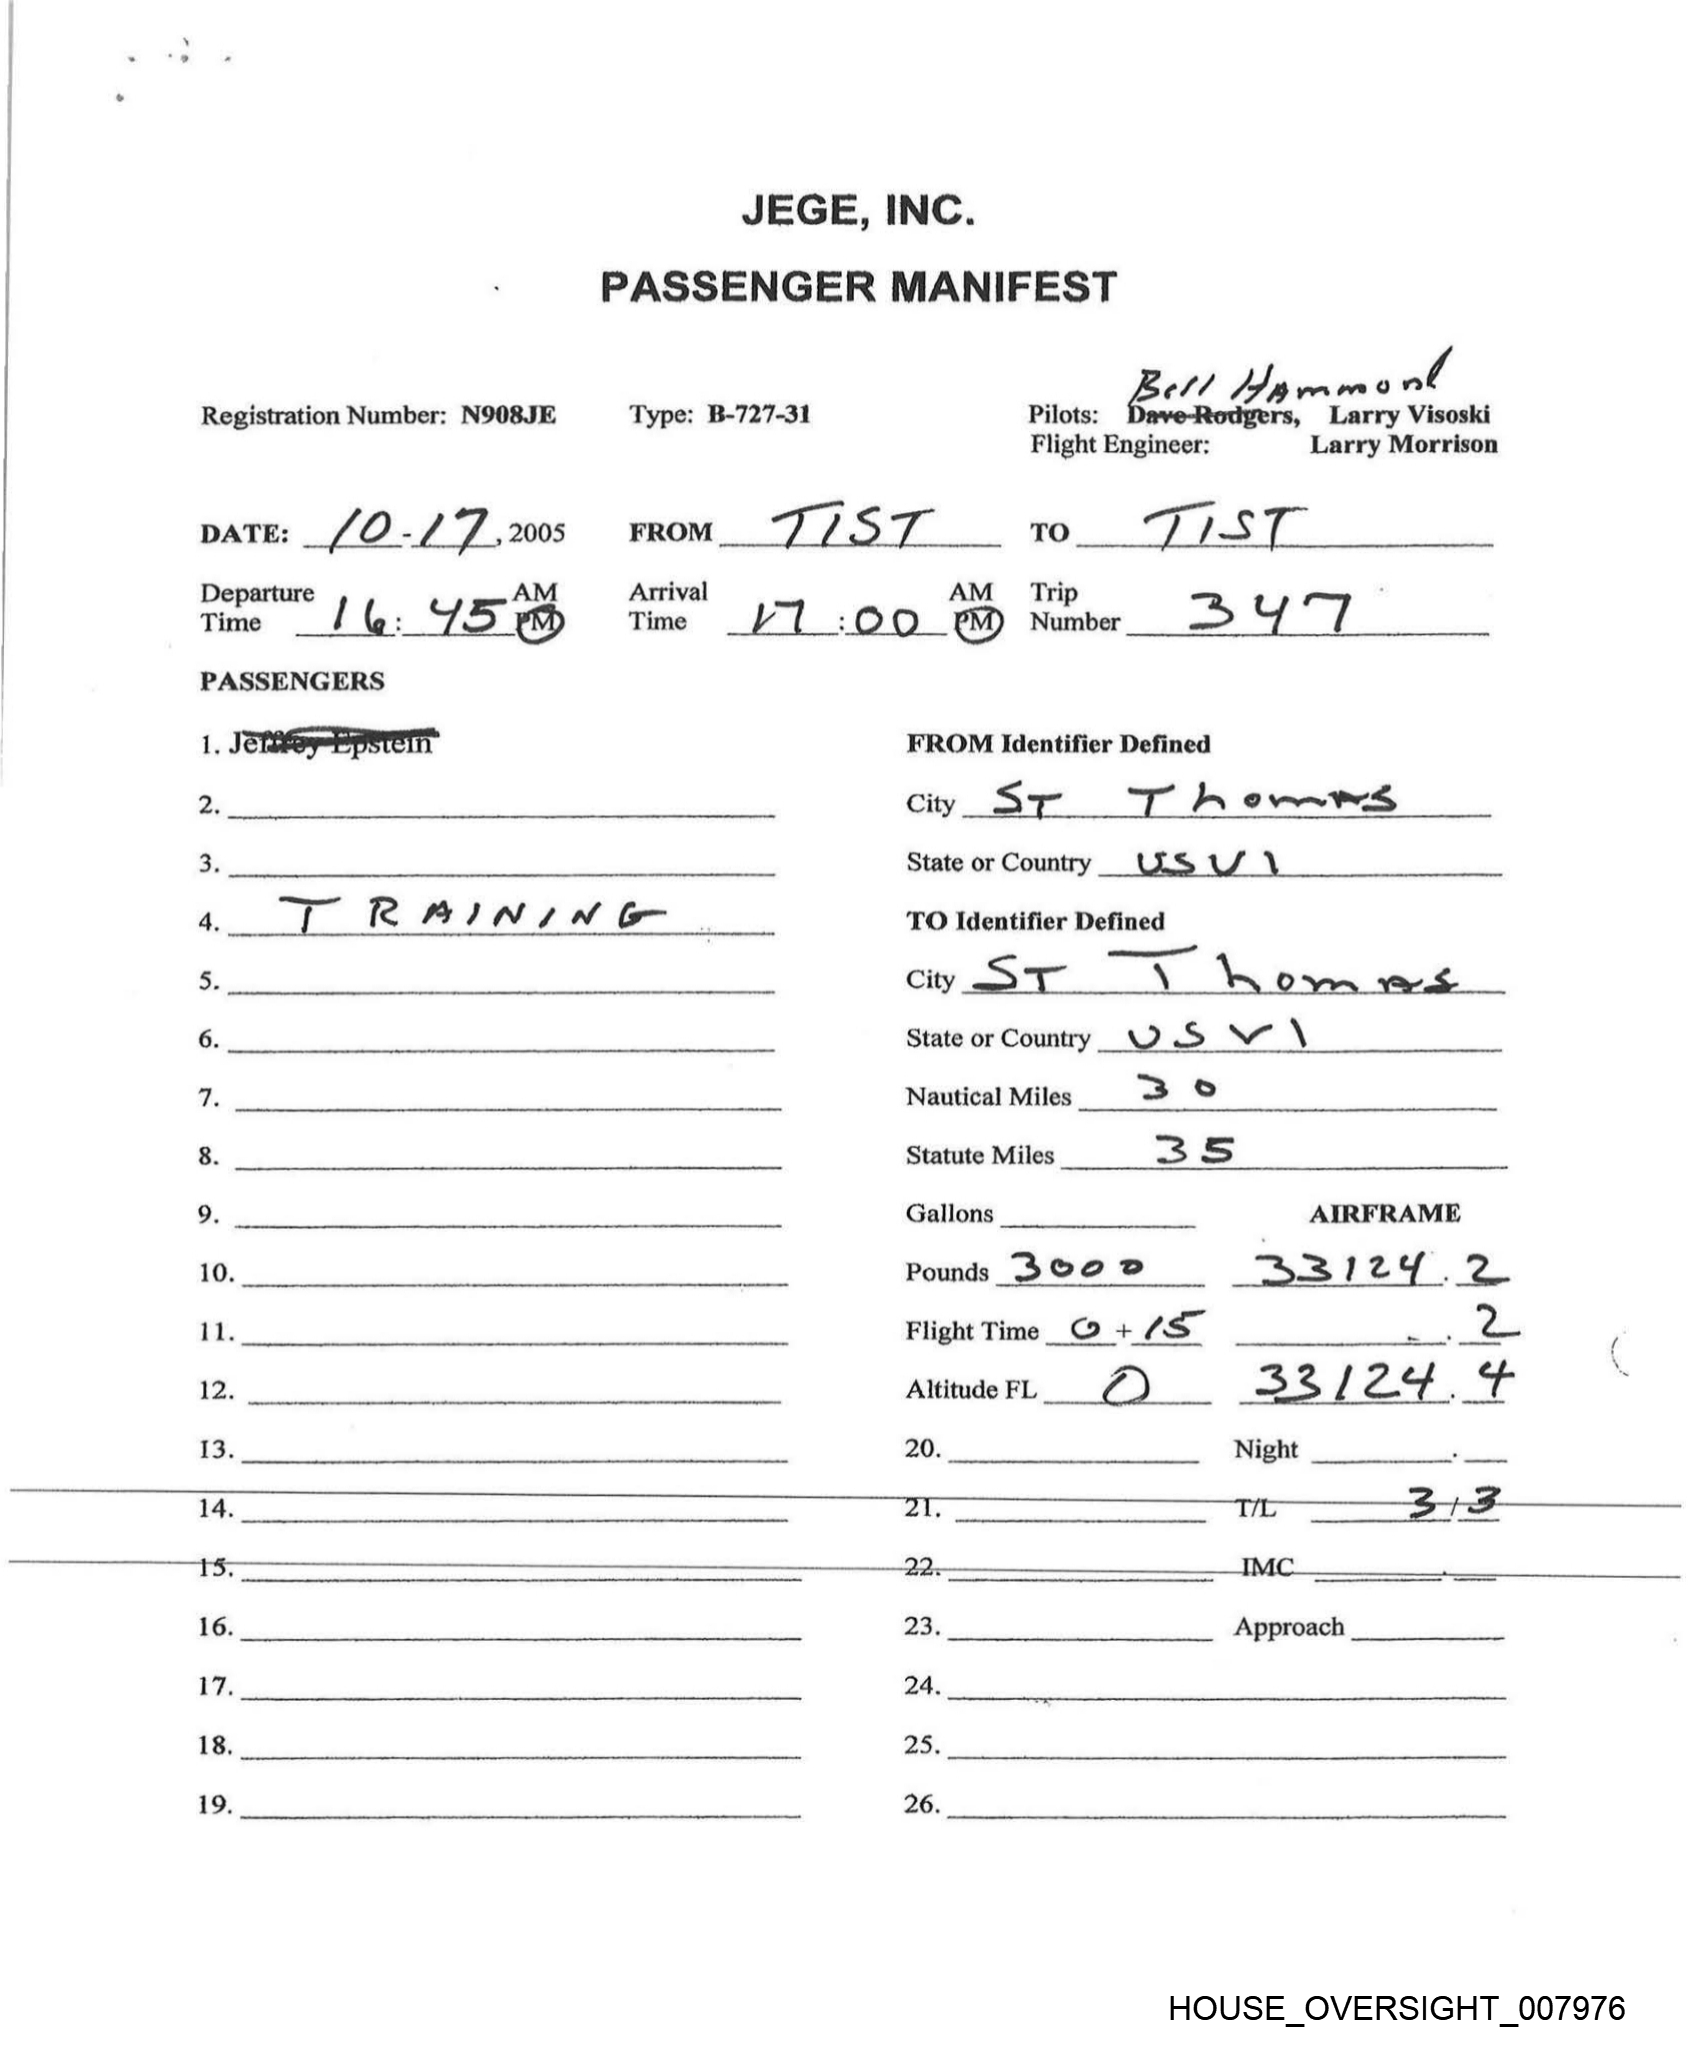 JEGE, INC.
PASSENGER MANIFEST
Bill Hammond
Registration Number: N908JE Type: B-727-31 Pilots: Dave Rodgers, Larry Visoski
Flight Engineer: Larry Morrison
DATE: 10-17, 2005 FROM TIST TO TIST
Departure AM Arrival AM Trip
Time 16:45 PM Time 17:00 PM Number 347
PASSENGERS
1. Jeffrey Epstein FROM Identifier Defined
2. City ST Thomas
3. State or Country USVI
4. TRAINING TO Identifier Defined
5. City ST Thomas
6. State or Country USVI
7. Nautical Miles 30
8. Statute Miles 35
9. Gallons AIRFRAME
10. Pounds 3000 33124.2
11. Flight Time 0+15 .2
12. Altitude FL 0 33124.4
13. 20. Night .
14. 21. T/L 3/3
15. 22. IMC .
16. 23. Approach
17. 24.
18. 25.
19. 26.
HOUSE_OVERSIGHT_007976